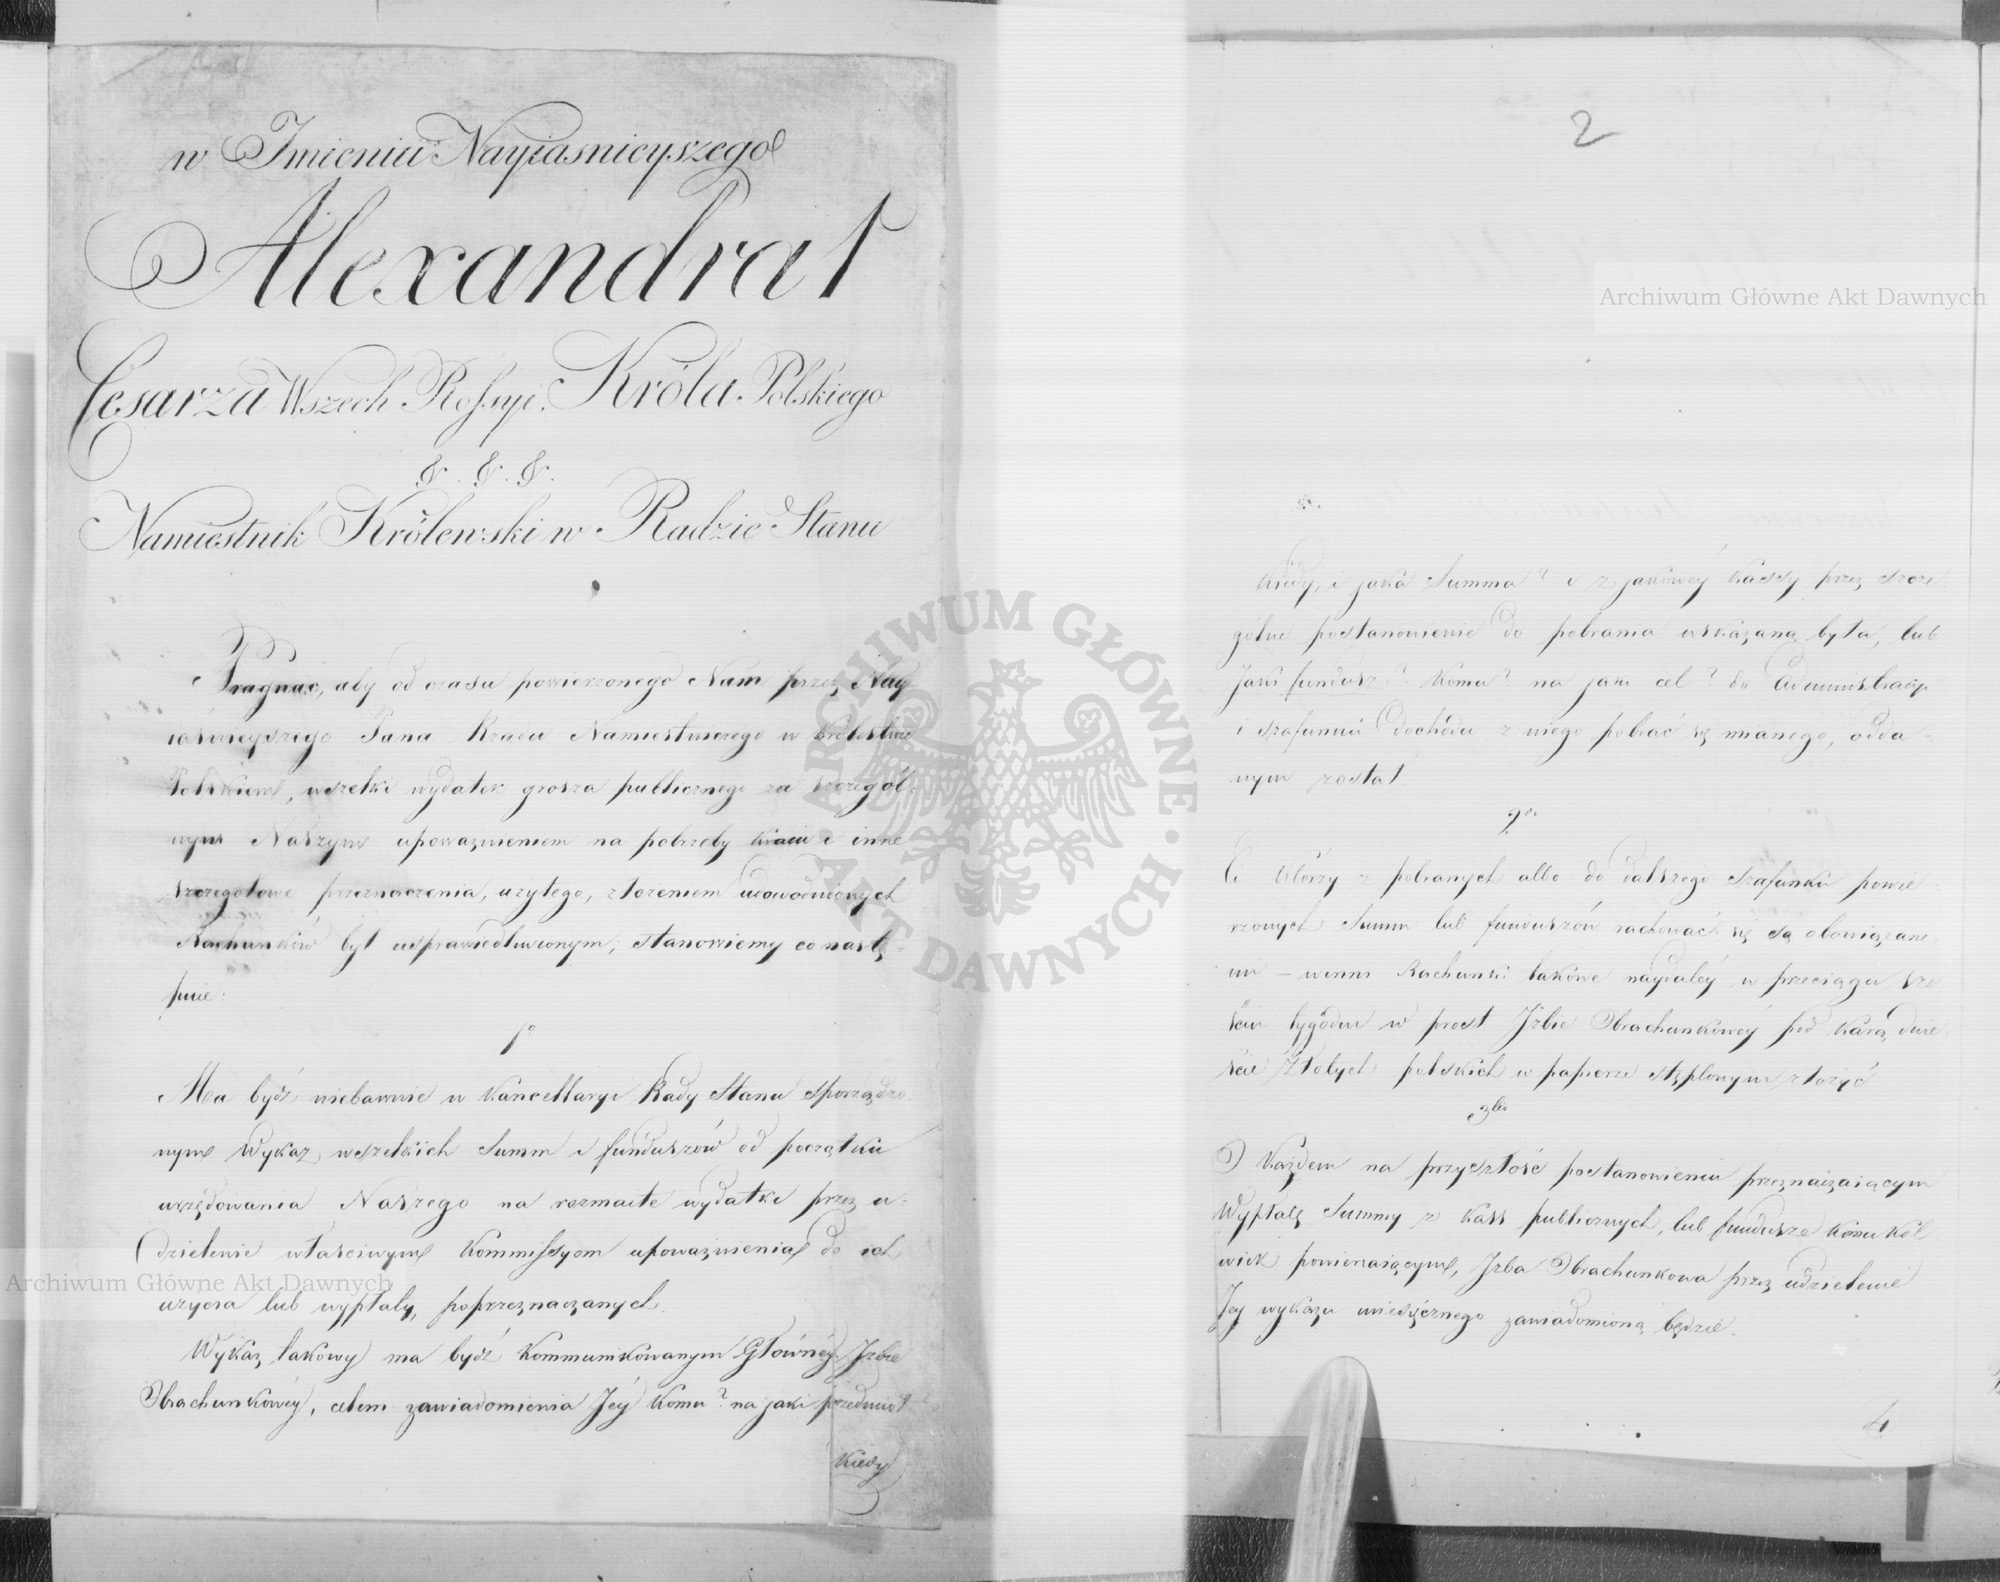 w Imieniu Nayiaśnieyszego
Alexandra I
Cesarza Wszech Rossyi, Króla Polskiego
&. &. &.
Namiestnik Królewski w Radzie Stanu
Pragnąc, aby od czasu powierzonego Nam przez Nay
iaśnieyszego Pana Rządu Namiestniczego w Królestwie
Polskiem, wszelki wydatek grosza publicznego za szczegól-
nym Naszym upoważnieniem na potrzeby kraiu i inne
szczegółowe przeznaczenia, użytego, złożeniem udowodnionych
Rachunków był usprawiedliwionym; stanowiemy co nastę-
puie:
1o
Ma bydź niebawnie w Kancellaryi Rady Stanu sporządzo-
nym Wykaz wszelkich Summ i funduszów od początku
urzędowania Naszego na rozmaite wydatki przez u-
dzielenie właściwym Kommissyom upoważnienia do ich
użycia lub wypłaty, poprzeznaczanych.
Wykaz takowy ma bydź kommunikowanym Główney Izbie
Obrachunkowéy, celem zawiadomienia Jéy komu? na jaki przedmiot
kiedy
2
kiedy, i jaka Summa? i z jakowéy kassy przez szcze-
gólne postanowienie do pobrania wskazaną była, lub
Jaki fundusz? komu? na jaki cel? do Administracyi
i szafunku dochodu z niego pobrać się mianego, odda-
nym został
2o.
Ci którzy z pobranych albo do dalszego szafunku powie-
rzonych Summ lub funduszów rachować się są obowiązane-
mi – winni Rachunki takowe naydaléy w przeciągu sze-
ściu tygodni w prost Izbie Obrachunkowéy pod karą dwie-
ście Złotych polskich w papierze stęplowym złożyć
3tio
O każdem na przyszłość postanowieniu przeznaczaiącym
Wypłatę Summy z kass publicznych, lub fundusze komu kol-
wiek powierzaiącym, Izba Obrachunkowa przez udzielenie
Jey wykazu miesięcznego zawiadomioną będzie.
4
Archiwum Główne Akt Dawnych
Archiwum Główne Akt Dawnych
ARCHIWUM GŁÓWNE · AKT DAWNYCH ·